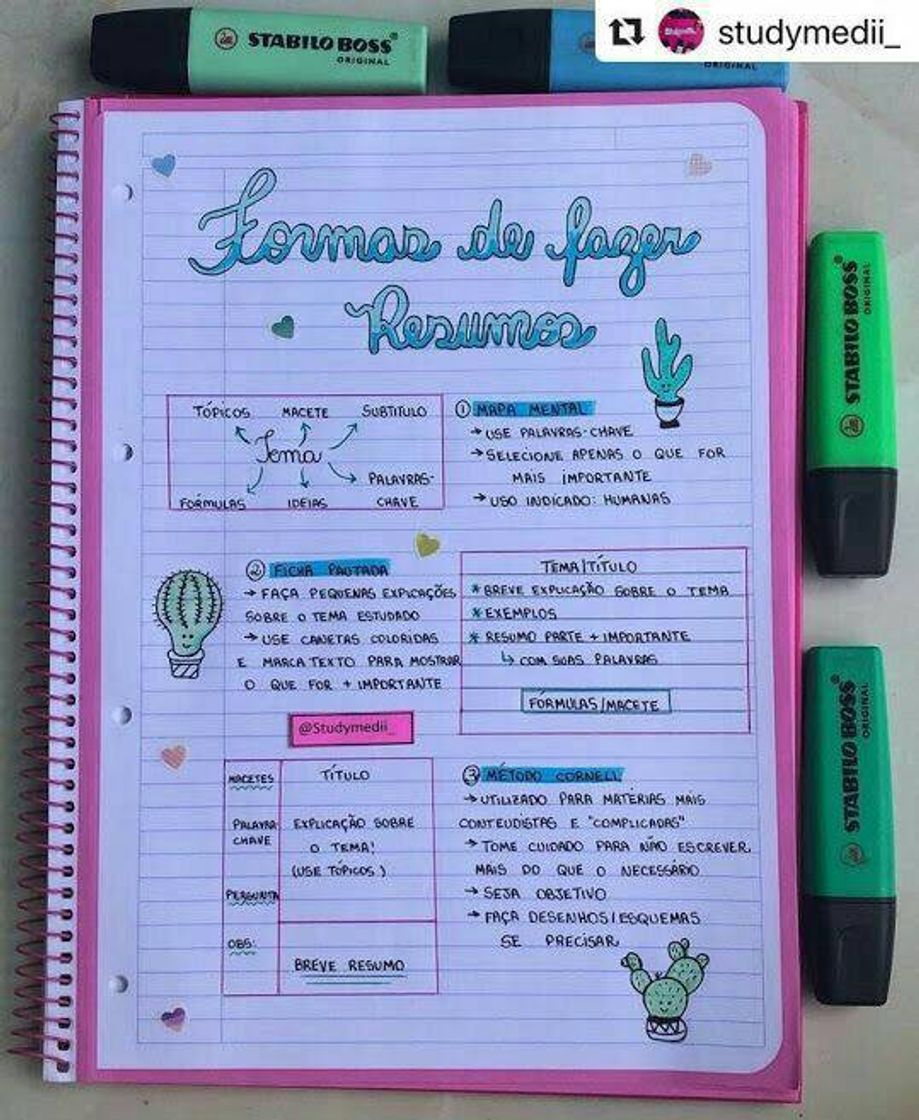 STABILO BOSS
ORIGINAL
ORIGINAL
studymedii_
Formas de fazer
Resumos
TÓPICOS MACETE SUBTITULO
Tema
PALAVRAS-
CHAVE
FÓRMULAS IDEIAS
① MAPA MENTAL
→ USE PALAVRAS-CHAVE
→ SELECIONE APENAS O QUE FOR
MAIS IMPORTANTE
→ USO INDICADO: HUMANAS
② FICHA PAUTADA
→ FAÇA PEQUENAS EXPLICAÇÕES
SOBRE O TEMA ESTUDADO
→ USE CANETAS COLORIDAS
E MARCA TEXTO PARA MOSTRAR
O QUE FOR + IMPORTANTE
TEMA/TÍTULO
* BREVE EXPLICAÇÃO SOBRE O TEMA
* EXEMPLOS
* RESUMO PARTE + IMPORTANTE
↳ COM SUAS PALAVRAS
FÓRMULAS/MACETE
@Studymedii_
MACETES
PALAVRA-
CHAVE
PERGUNTA
OBS:
TÍTULO
EXPLICAÇÃO SOBRE
O TEMA!
(USE TÓPICOS)
BREVE RESUMO
③ MÉTODO CORNELL
→ UTILIZADO PARA MATÉRIAS MAIS
CONTEUDISTAS E "COMPLICADAS"
→ TOME CUIDADO PARA NÃO ESCREVER
MAIS DO QUE O NECESSÁRIO
→ SEJA OBJETIVO
→ FAÇA DESENHOS/ESQUEMAS
SE PRECISAR
STABILO BOSS
ORIGINAL
STABILO BOSS
ORIGINAL